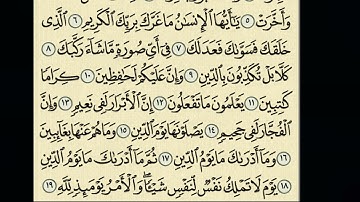 وَأَخَّرَتْ ٥ يَٰٓأَيُّهَا ٱلْإِنسَٰنُ مَا غَرَّكَ بِرَبِّكَ ٱلْكَرِيمِ ٦ ٱلَّذِى
خَلَقَكَ فَسَوَّىٰكَ فَعَدَلَكَ ٧ فِىٓ أَىِّ صُورَةٍ مَّا شَآءَ رَكَّبَكَ ٨
كَلَّا بَلْ تُكَذِّبُونَ بِٱلدِّينِ ٩ وَإِنَّ عَلَيْكُمْ لَحَٰفِظِينَ ١٠ كِرَامًا
كَٰتِبِينَ ١١ يَعْلَمُونَ مَا تَفْعَلُونَ ١٢ إِنَّ ٱلْأَبْرَارَ لَفِى نَعِيمٍ ١٣ وَإِنَّ
ٱلْفُجَّارَ لَفِى جَحِيمٍ ١٤ يَصْلَوْنَهَا يَوْمَ ٱلدِّينِ ١٥ وَمَا هُمْ عَنْهَا بِغَآئِبِينَ
١٦ وَمَآ أَدْرَىٰكَ مَا يَوْمُ ٱلدِّينِ ١٧ ثُمَّ مَآ أَدْرَىٰكَ مَا يَوْمُ ٱلدِّينِ
١٨ يَوْمَ لَا تَمْلِكُ نَفْسٌ لِّنَفْسٍ شَيْـًٔا ۖ وَٱلْأَمْرُ يَوْمَئِذٍ لِّلَّهِ ١٩